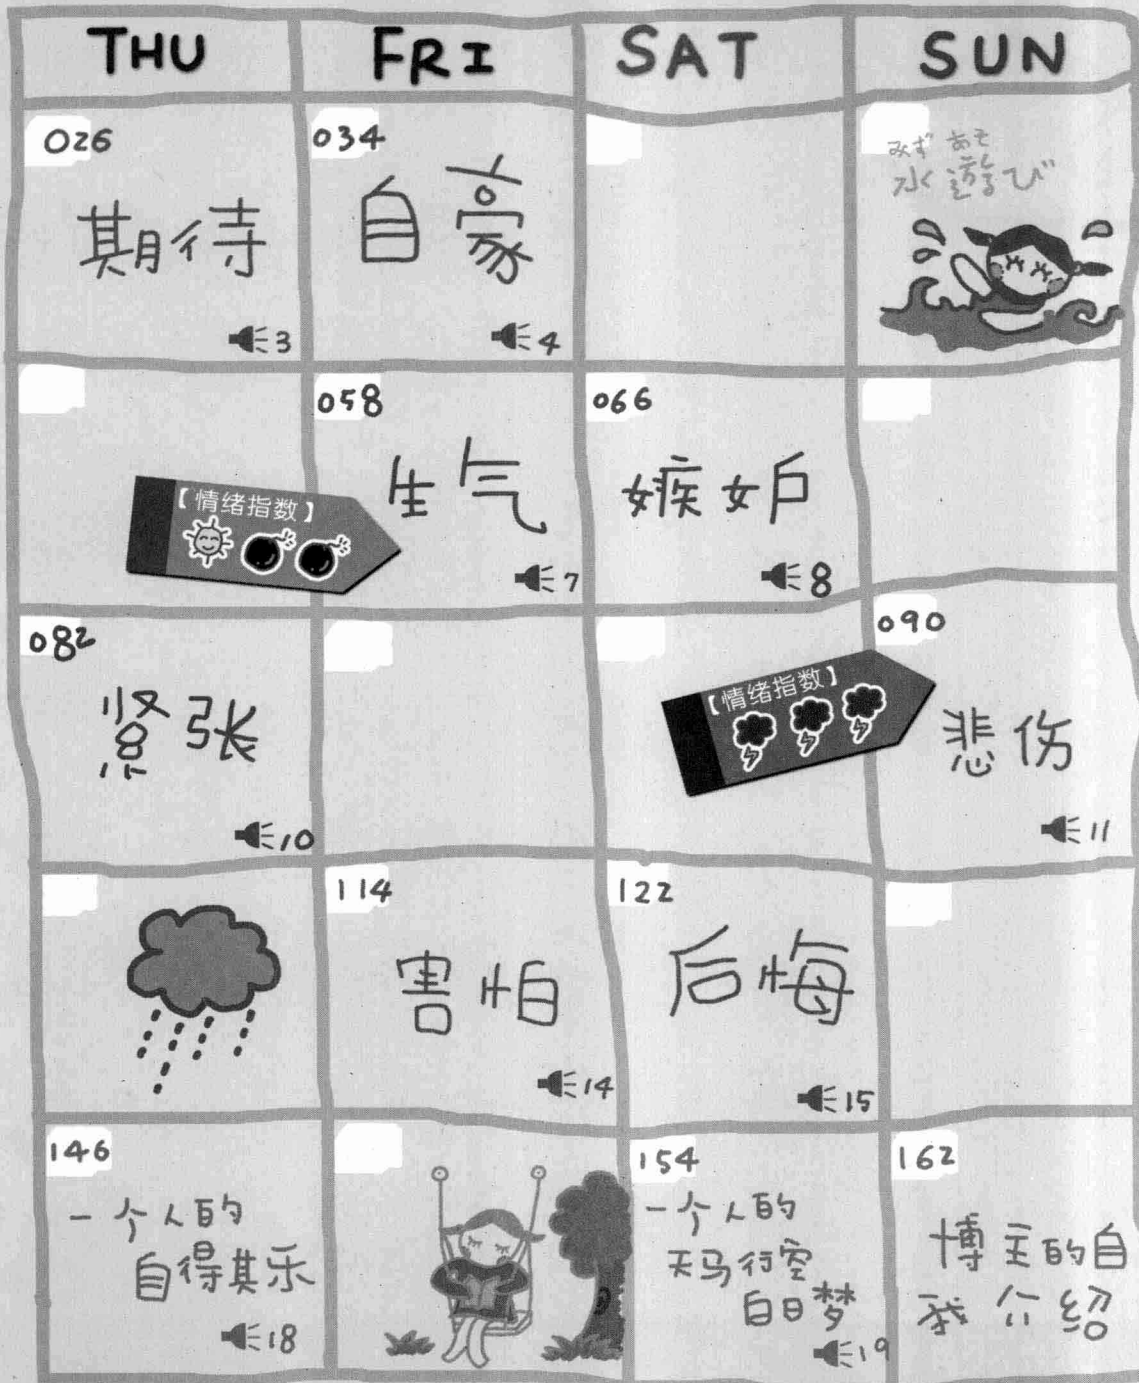 THU FRI SAT SUN
026
期待
3
034
自豪
4
みず あそ
水遊び
【情绪指数】
058
生气
7
066
嫉妒
8
082
紧张
10
【情绪指数】
090
悲伤
11
114
害怕
14
122
后悔
15
146
一个人的
自得其乐
18
154
一个人的
天马行空
白日梦
19
162
博主的自
我介绍